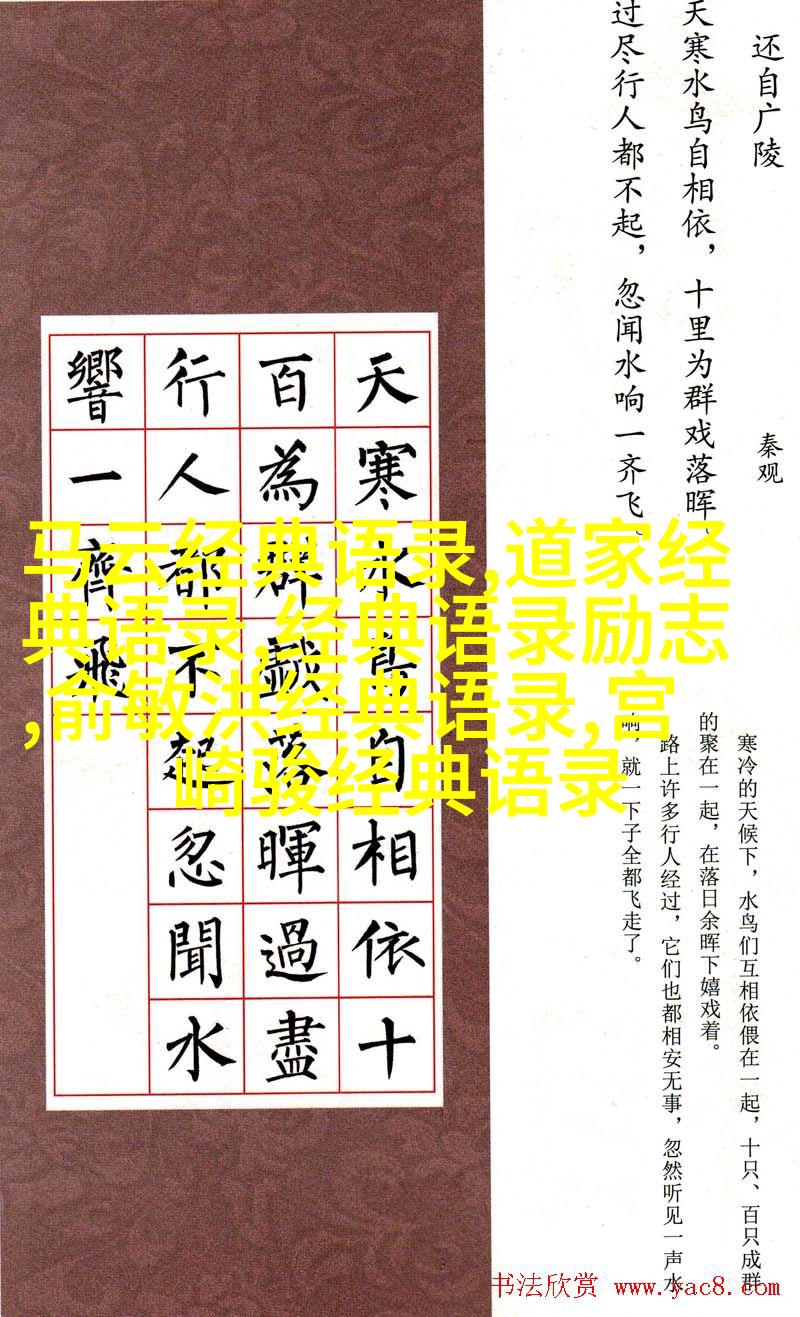 还自广陵
秦观
天寒水鸟自相依，十里为群戏落晖。
过尽行人都不起，忽闻水响一齐飞。
天寒水鳥自相依十
百為群戲落暉過盡
行人都不起忽聞水
響一齊飛
马云经典语录,道家经
典语录,经典语录励志
,俞敏洪经典语录,宫
崎骏经典语录
寒冷的天候下，水鸟们互相依偎在一起，十只、百只成群
的聚在一起，在落日余晖下嬉戏着。
路上许多行人经过，它们也都相安无事，忽然听见一声水
响，就一下子全都飞走了。
书法欣赏 www.yac8.com